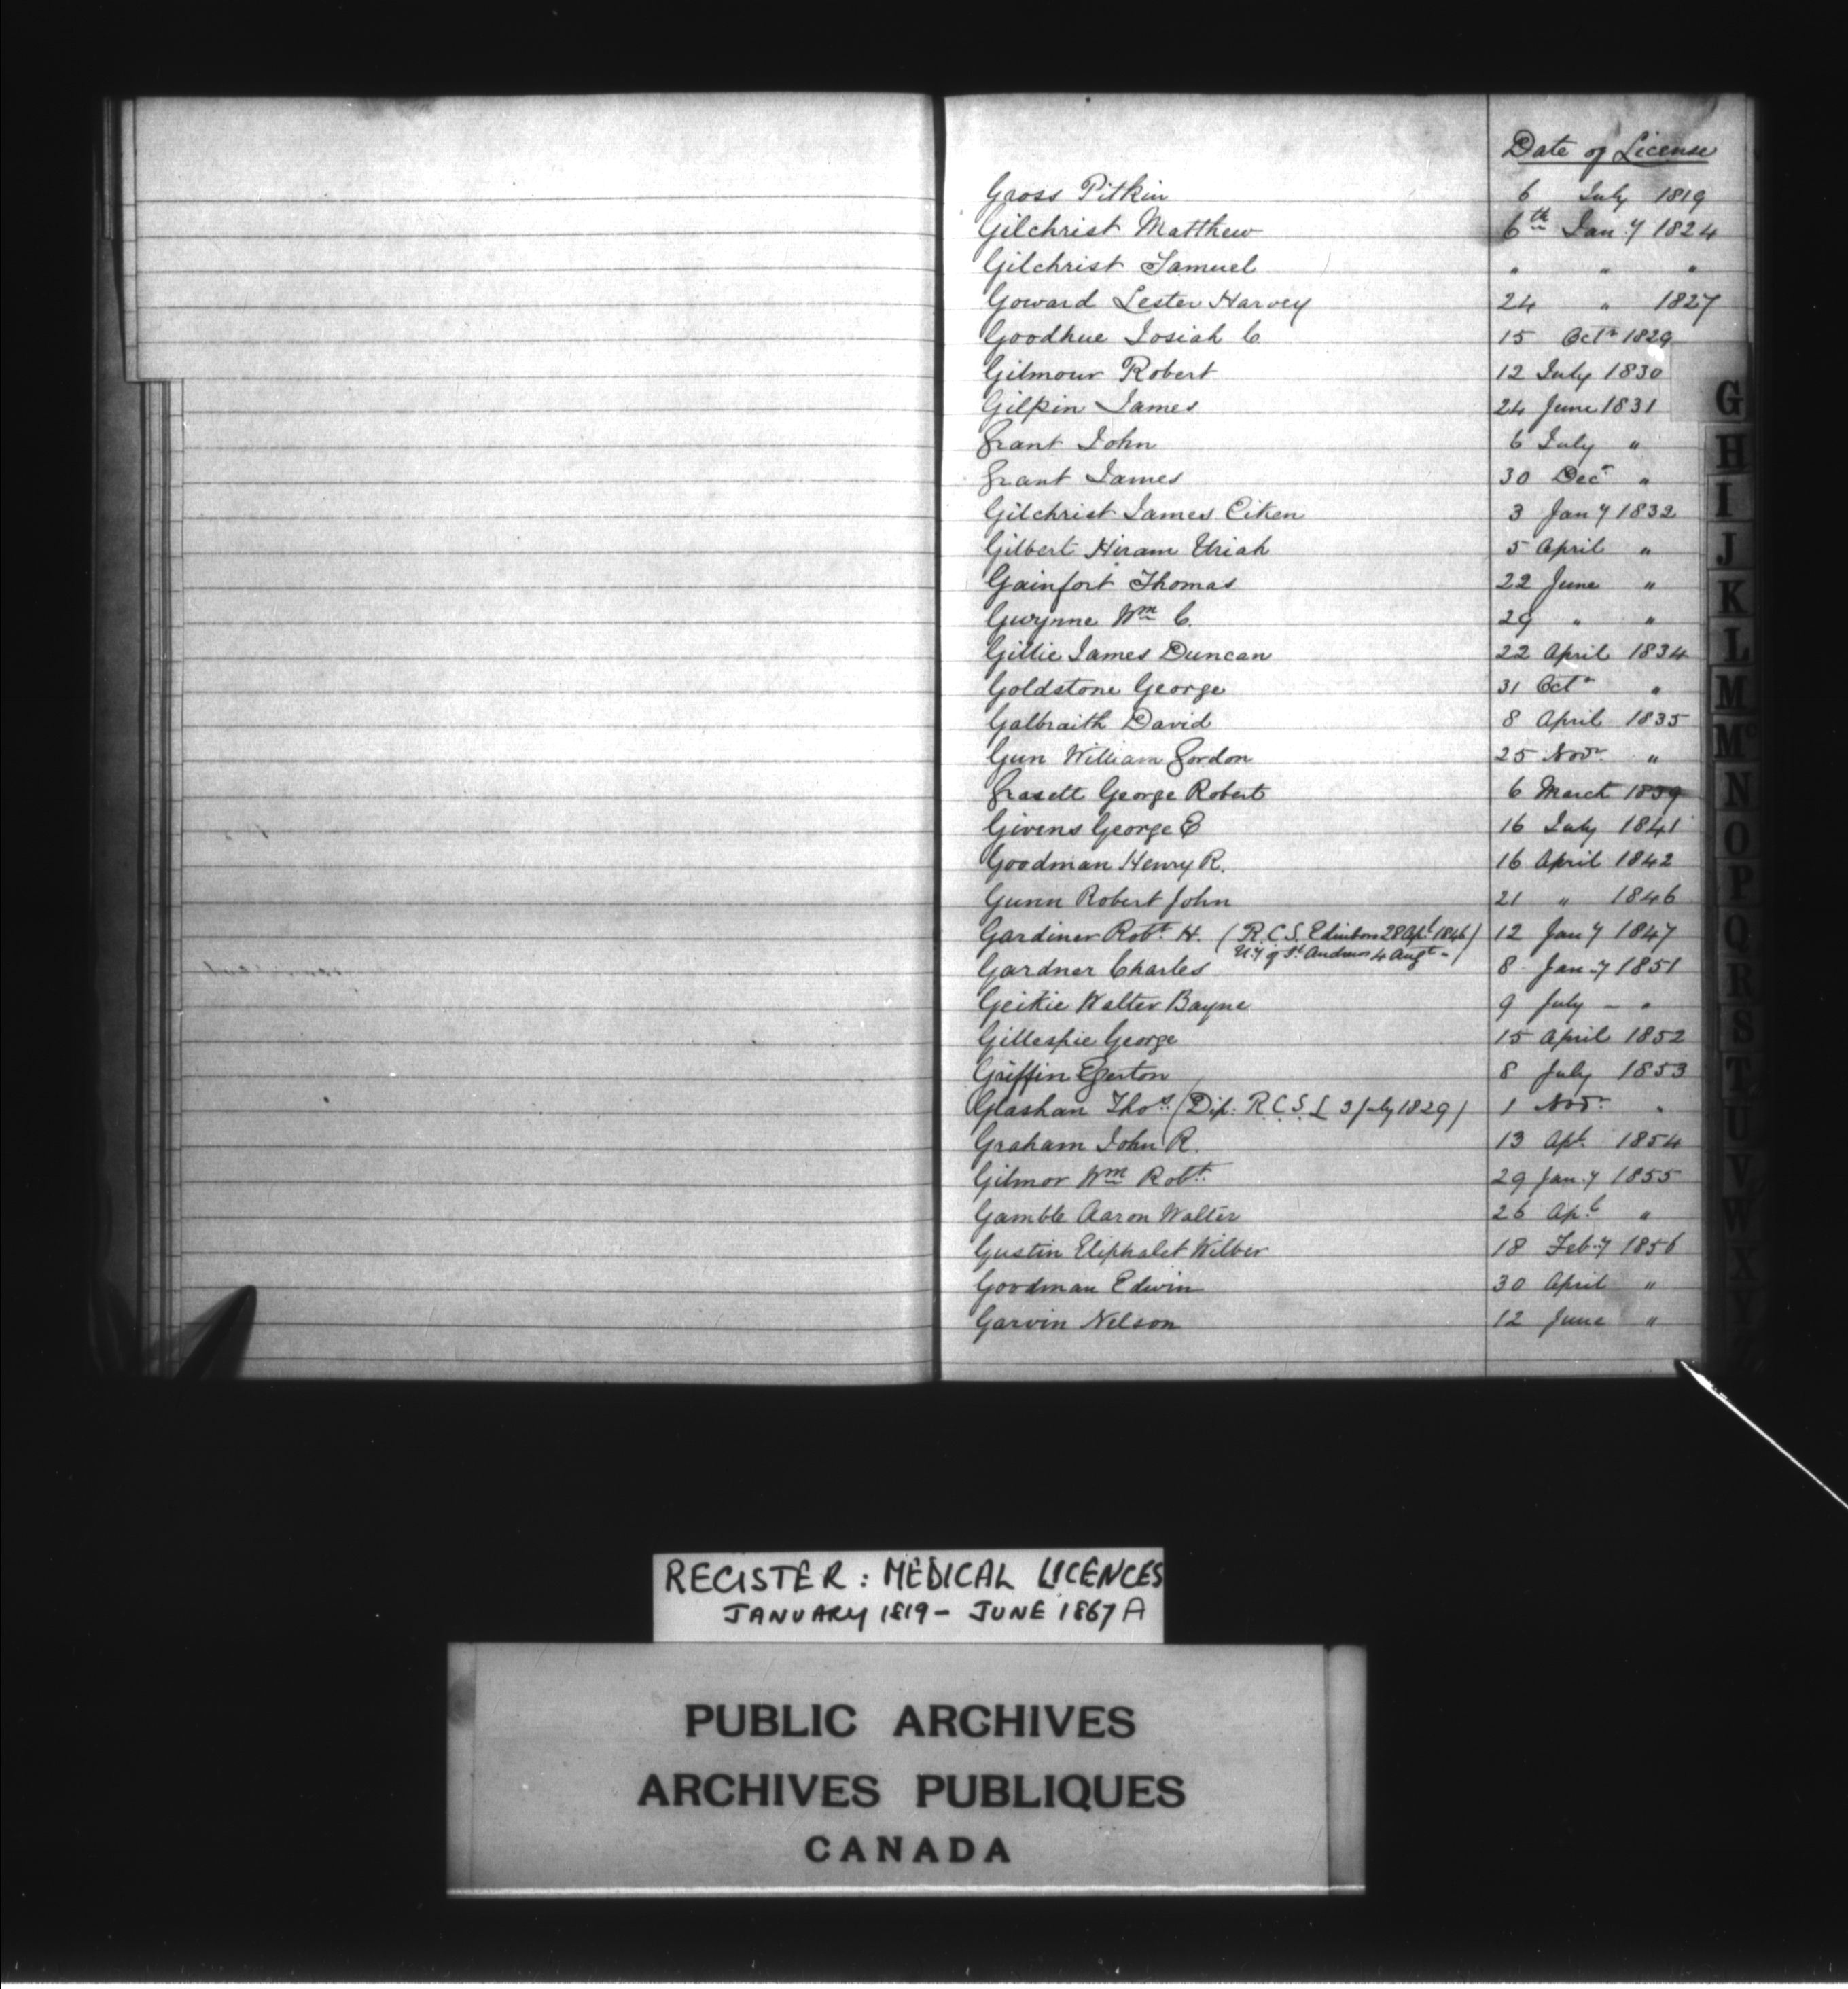 Date of License
Gross Pitkin 6 July 1819
Gilchrist Matthew 6th Jan.y 1824
Gilchrist Samuel " " "
Goward Lester Harvey 24 " 1827
Goodhue Josiah C 15 Octr 1829
Gilmour Robert 12 July 1830
Gilpin James 24 June 1831
Grant John 6 July "
Grant James 30 Decr "
Gilchrist James Eiken 3 Jany 1832
Gilbert Hiram Uriah 5 April "
Gainfort Thomas 22 June "
Gwynne Wm C. 29 " "
Gillie James Duncan 22 April 1834
Goldstone George 31 Octr "
Galbraith David 8 April 1835
Gun William Gordon 25 Novr. "
Grasett George Robert 6 March 1839
Givens George E 16 July 1841
Goodman Henry R. 16 April 1842
Gunn Robert John 21 " 1846
Gardiner Robt. H. (R.C.S. Edinboro 28 Apl 1846) 12 Jany 1847
U.y of St Andrews 4 Augt "
Gardner Charles 8 Jan.y 1851
Geikie Walter Bayne 9 July - "
Gillespie George 15 April 1852
Griffin Egerton 8 July 1853
Glashan Thos. (Dip: R.C.S. L 3 July 1829) 1 Novr. "
Graham John R. 13 Apl. 1854
Gilmor Wm Robt. 29 Jan.y 1855
Gamble Aaron Walter 26 Ap.l "
Gustin Eliphalet Wilber 18 Feb.y 1856
Goodman Edwin 30 April "
Garvin Nelson 12 June "
G
H
I
J
K
L
M
Mc
N
O
P
Q
R
S
T
U
V
W
X
Y
Z
REGISTER : MEDICAL LICENCES
JANUARY 1819 - JUNE 1867 A
PUBLIC ARCHIVES
ARCHIVES PUBLIQUES
CANADA